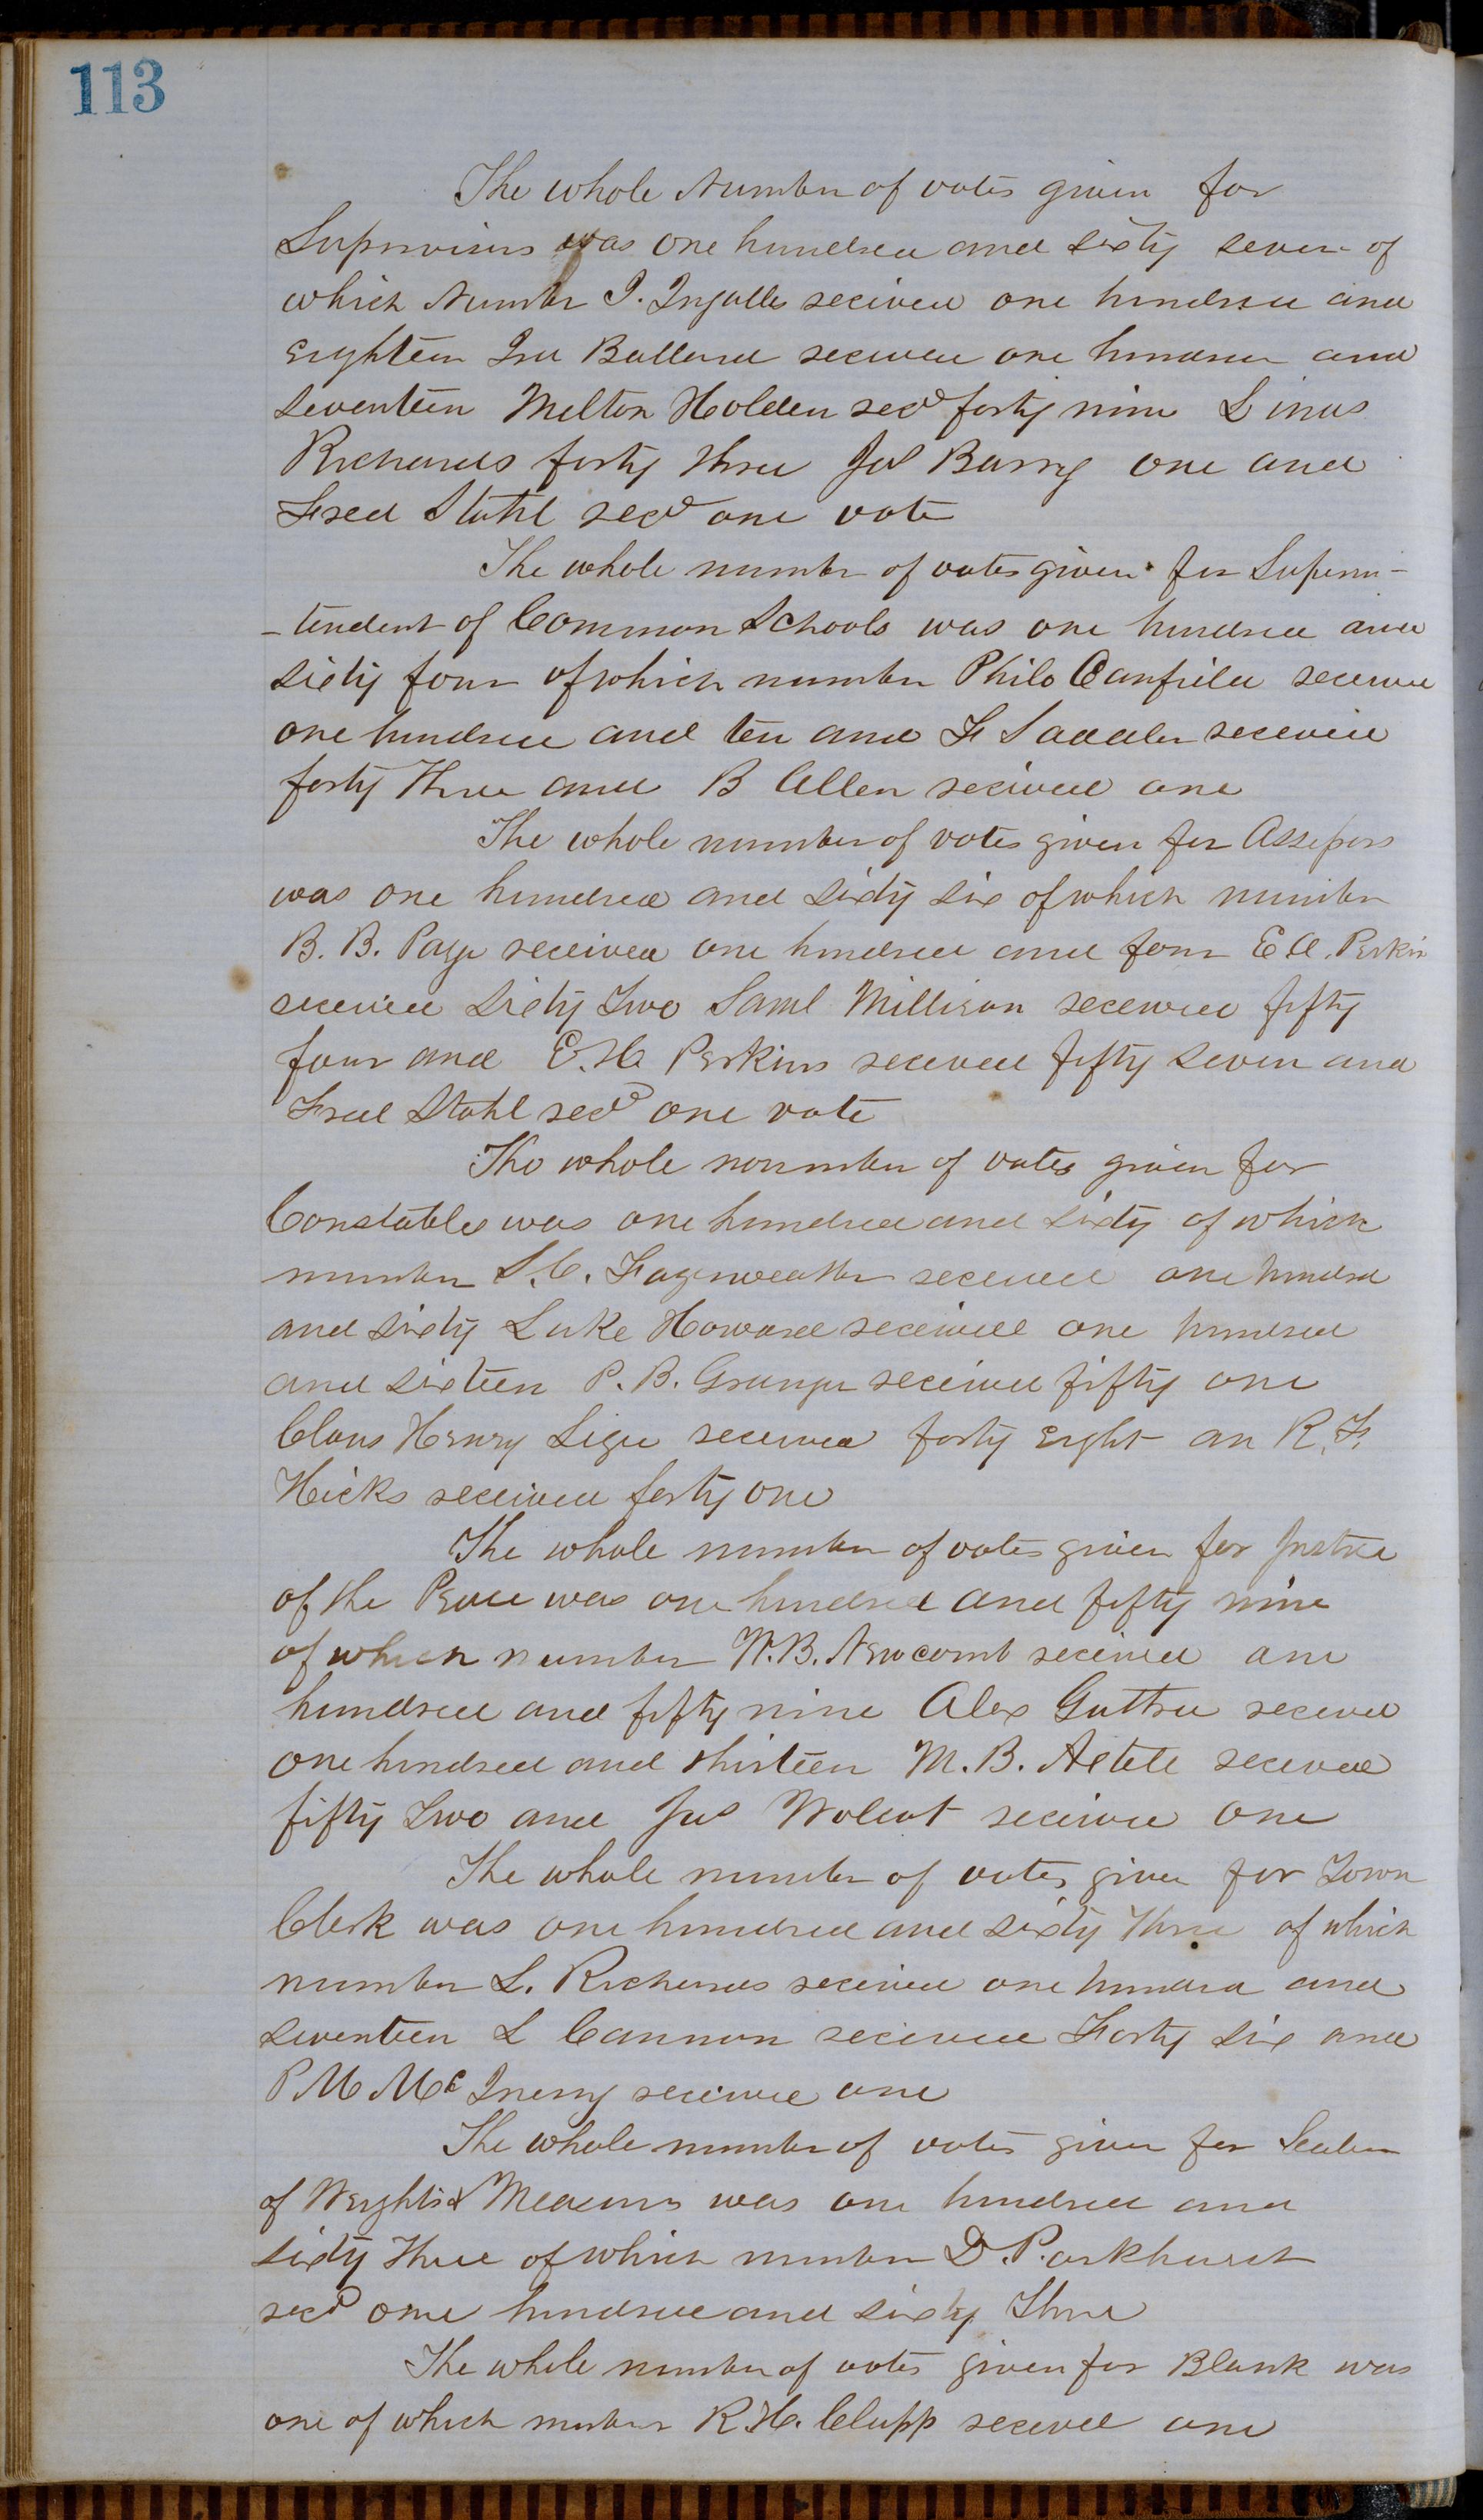 113
The whole Number of votes given for
Supervisors was one hundred and sixty seven of
which Number J. Ingalls received one hundred and
Eighteen Ira Ballard received one hundred and
seventeen Milton Holden recd forty nine Linus
Richards forty three Jas Barry one and
Fred Stahl recd one vote
The whole number of votes given for Superin-
-tendent of Common Schools was one hundred and
sixty four of which number Philo Canfield received
one hundred and ten and F Saddler received
forty three and B Allen received one
The whole number of votes given for Assessors
was one hundred and sixty six of which number
B. B. Page received one hundred and four E A. Perkin
received sixty two Saml Millison received fifty
four and E. H. Perkins received fifty seven and
Fred Stahl recd one vote
The whole number of votes given for
Constables was one hundred and sixty of which
number S. C. Fayerweather received one hundred
and sixty Luke Howard received one hundred
and sixteen P. B. Granger received fifty one
Claus Henry received forty Eight an R. F.
Hicks received forty one
The whole number of votes given for Justice
of the Peace was one hundred and fifty nine
of which number W. B. Newcomb received one
hundred and fifty nine Alex Guttru received
one hundred and thirteen M. B. received
fifty two and Jas Wolcot received one
The whole number of votes given for Town
Clerk was one hundred and sixty three of which
number L. Richards received one hundred and
seventeen L Cannon received Forty six and
P M McInerny received one
The whole number of votes given for Sealer
of Weights & Measures was one hundred and
sixty three of which number D. Parkhurst
recd one hundred and sixty three
The whole number of votes given for Blank was
one of which number R. H. Clupp received one